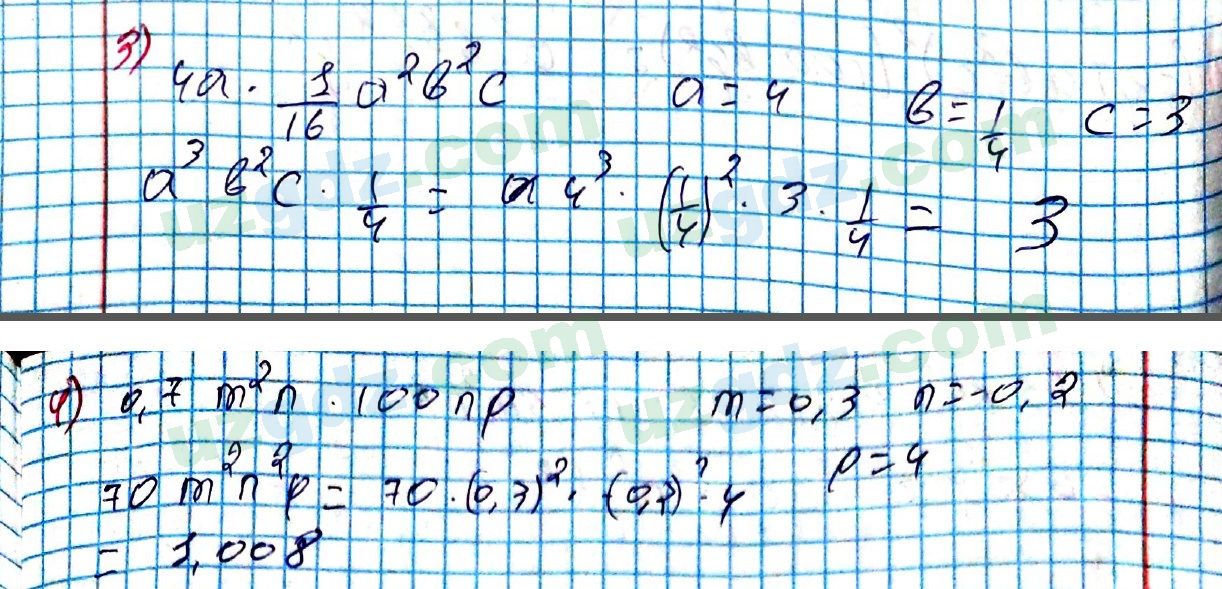 3) 4a · 1/16 a²b²c a = 4 b = 1/4 c = 3
a³ b²c · 1/4 = 4³ · (1/4)² · 3 · 1/4 = 3
uzgdz.com uzgdz.com
4) 0,7 m²n · 100np m = 0,3 n = -0,2
p = 4
70 m²n²p = 70 · (0,3)² · (0,2)² · 4
= 1,008
uzgdz.com uzgdz.com